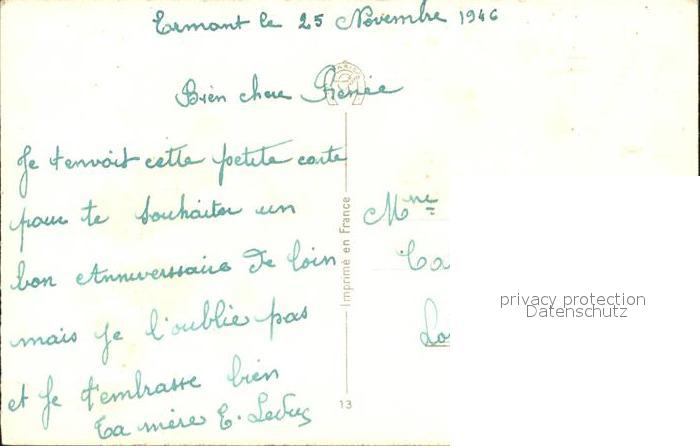 Ermont le 25 Novembre 1946
Bien chere Renée
Je t'envoit cette petite carte
pour te souhaiter un
bon Anniverssaire de loin
mais je l'oublie pas
et je t'embrasse bien
Ta mère E. Leduc
Mme
Imprimé en France
13
privacy protection
Datenschutz